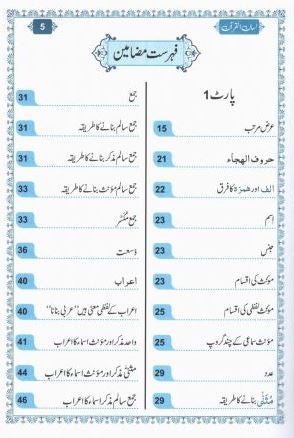 لسان القرآن
5
فہرست مضامین
پارٹ 1
عرض مرتب 15
حروف الهجاء 21
الف اور همزہ کا فرق 22
اسم 23
جنس 23
مؤنث کی اقسام 23
مؤنث لفظی کی اقسام 25
مؤنث سماعی کے چند گروپ 25
عدد 29
مُثَنّٰی بنانے کا طریقہ 29
جمع 31
جمع سالم بنانے کا طریقہ 31
جمع سالم مذکر بنانے کا طریقہ 31
جمع سالم مؤنث بنانے کا طریقہ 33
جمع مُکَسَّر 33
وسعت 36
اعراب 40
اعراب کے لفظی معنی ہیں "عربی بنانا" 40
واحد مذکر اور مؤنث اسماء کا اعراب 41
مثنّٰی مذکر اور مؤنث اسماء کا اعراب 44
جمع سالم مذکر اسماء کا اعراب 46